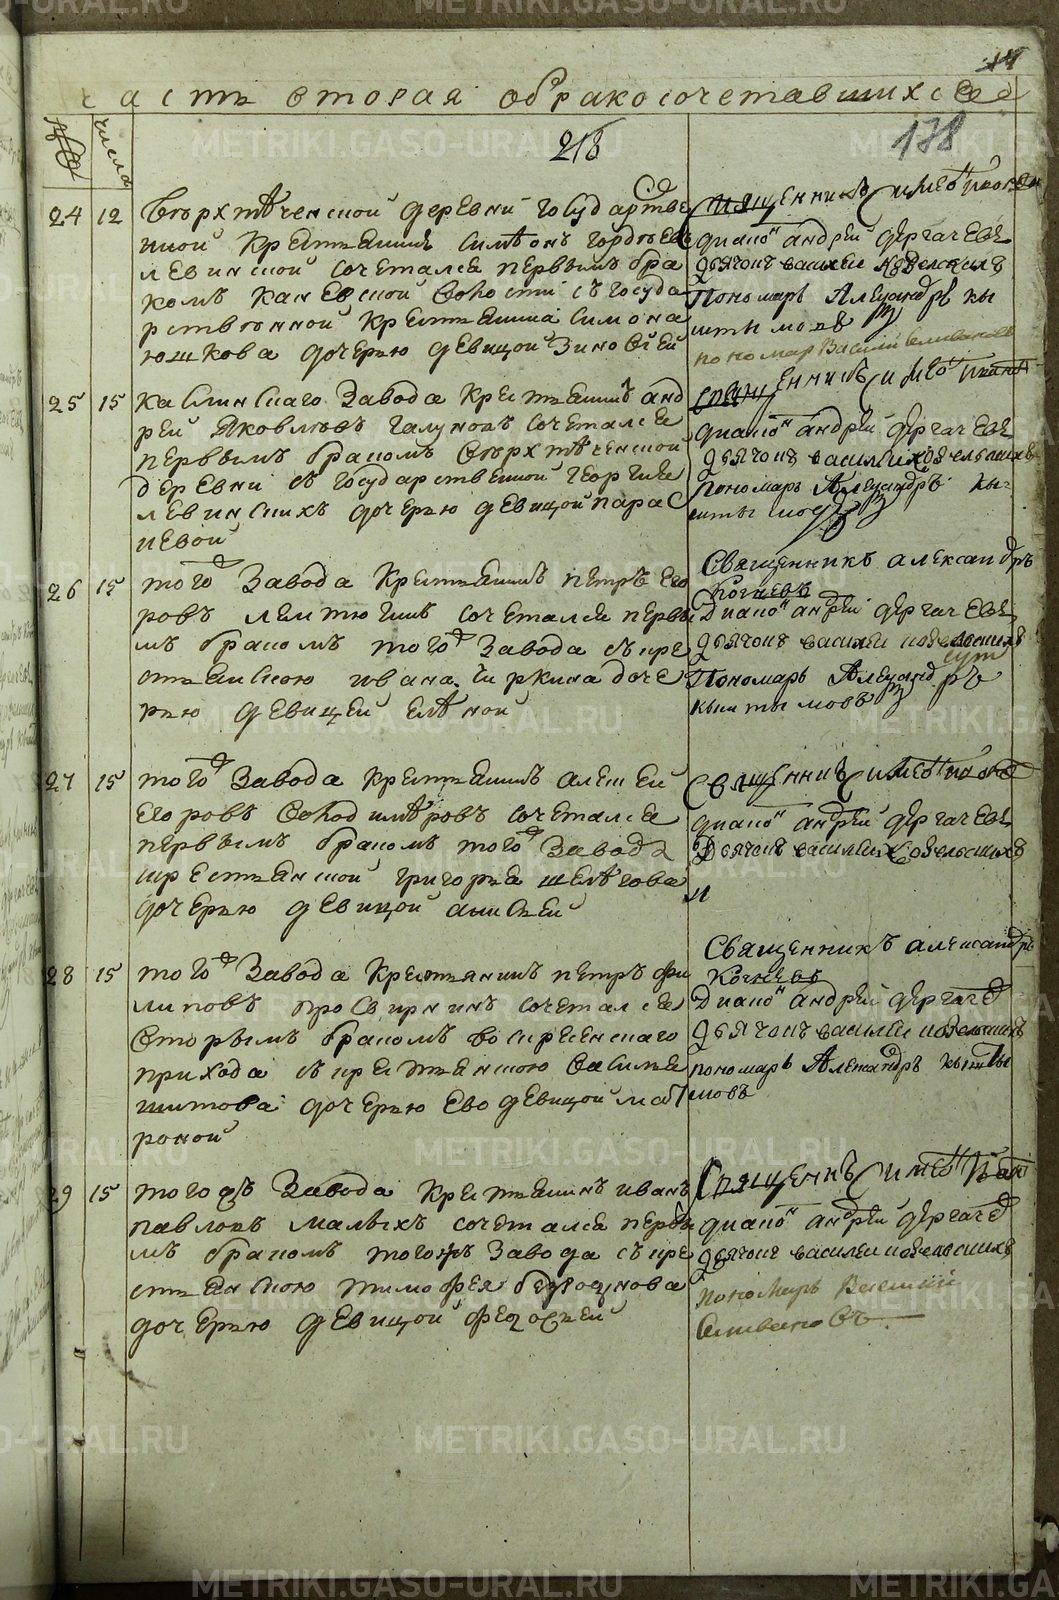 METRIKI.GASO-URAL.RU
часть вторая о бракосочетавшихсе
числа
218
178
24 12
Верхтеченской деревни государстве
нной крестьянинъ Симеонъ Гордеевъ
Левинской сочетался первымъ бра
комъ Каневской волости съ государ
рственной крестьянина Симона
Юшкова дочерью девицой Зиновией
Священникъ Симеонъ
диаконъ Андрей Дергачевъ
дьячокъ Василей Кобелскихъ
Пономарь Александръ Кы
штымовъ
пономарь Василий Селивановъ
25 15
Каслинскаго завода крестьянинъ Анд
рей Яковлевъ Галуновъ сочетался
первымъ бракомъ Верхтеченской
деревни съ государственной Георгия
Левинскихъ дочерью девицой Парас
кевой
Священникъ Симеонъ
диаконъ Андрей Дергачевъ
дьячокъ Василей Кобельскихъ
пономарь Александръ Кы
штымовъ
26 15
того завода крестьянинъ Петръ Его
ровъ сочетался первы
мъ бракомъ того завода съ кре
стьянскою Ивана Чиркина доче
рью девицей Еленой
Священникъ Александръ
Кочневъ
Диаконъ Андрей Дергачевъ
дьячокъ Василеи Кобелскихъ
Пономарь Александръ
Кыштымовъ
27 15
того завода крестьянинъ Алексей
Егоровъ сочетался
первымъ бракомъ того завода
крестьянской Григорья Щелгова
дочерью девицой
Священникъ Симеонъ
диаконъ Андрей Дергачевъ
Дьячокъ Василей Кобельскихъ
и
28 15
того завода крестьянинъ Петръ Фи
липовъ Просвирнинъ сочетался
вторымъ бракомъ Воскресенскаго
прихода съ крестьянскою Василья
Шитова дочерью ево девицой Мат
роной
Священникъ Александръ
Кочневъ
Диаконъ Андрей Дергаче
дьячокъ Василеи Кобелскихъ
пономарь Александръ Кышты
мовъ
29 15
того жъ завода крестьянинъ Иванъ
Павловъ Малыхъ сочетался первы
мъ бракомъ того жъ завода съ кре
стьянскою Тимофея
дочерью девицой Федосьей
Священникъ Симеонъ
диаконъ Андрей Дергаче
дьячокъ Василеи Кобельскихъ
пономарь Василий
Селивановъ